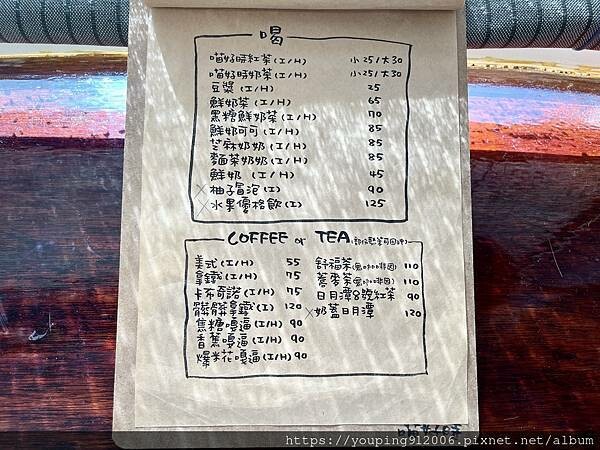 喝
喵好時紅茶(I/H) 小25/大30
喵好時奶茶(I/H) 小25/大30
豆漿(I/H) 25
鮮奶茶(I/H) 65
黑糖鮮奶茶(I/H) 70
鮮奶可可(I/H) 85
芝麻奶奶(I/H) 85
麵茶奶奶(I/H) 85
鮮奶(I/H) 45
×柚子冒泡(I) 90
×水果優格飲(I) 125
COFFEE or TEA
美式(I/H) 55
拿鐵(I/H) 75
卡布奇諾(I/H) 75
髒髒拿鐵(I) 120
焦糖嘎逼(I/H) 90
香蕉嘎逼(I/H) 90
爆米花嘎逼(I/H) 90
舒福茶(無咖啡因) 110
蕎麥茶(無咖啡因) 110
日月潭8號紅茶 90
×奶蓋日月潭 120
https://youping912006.pixnet.net/album